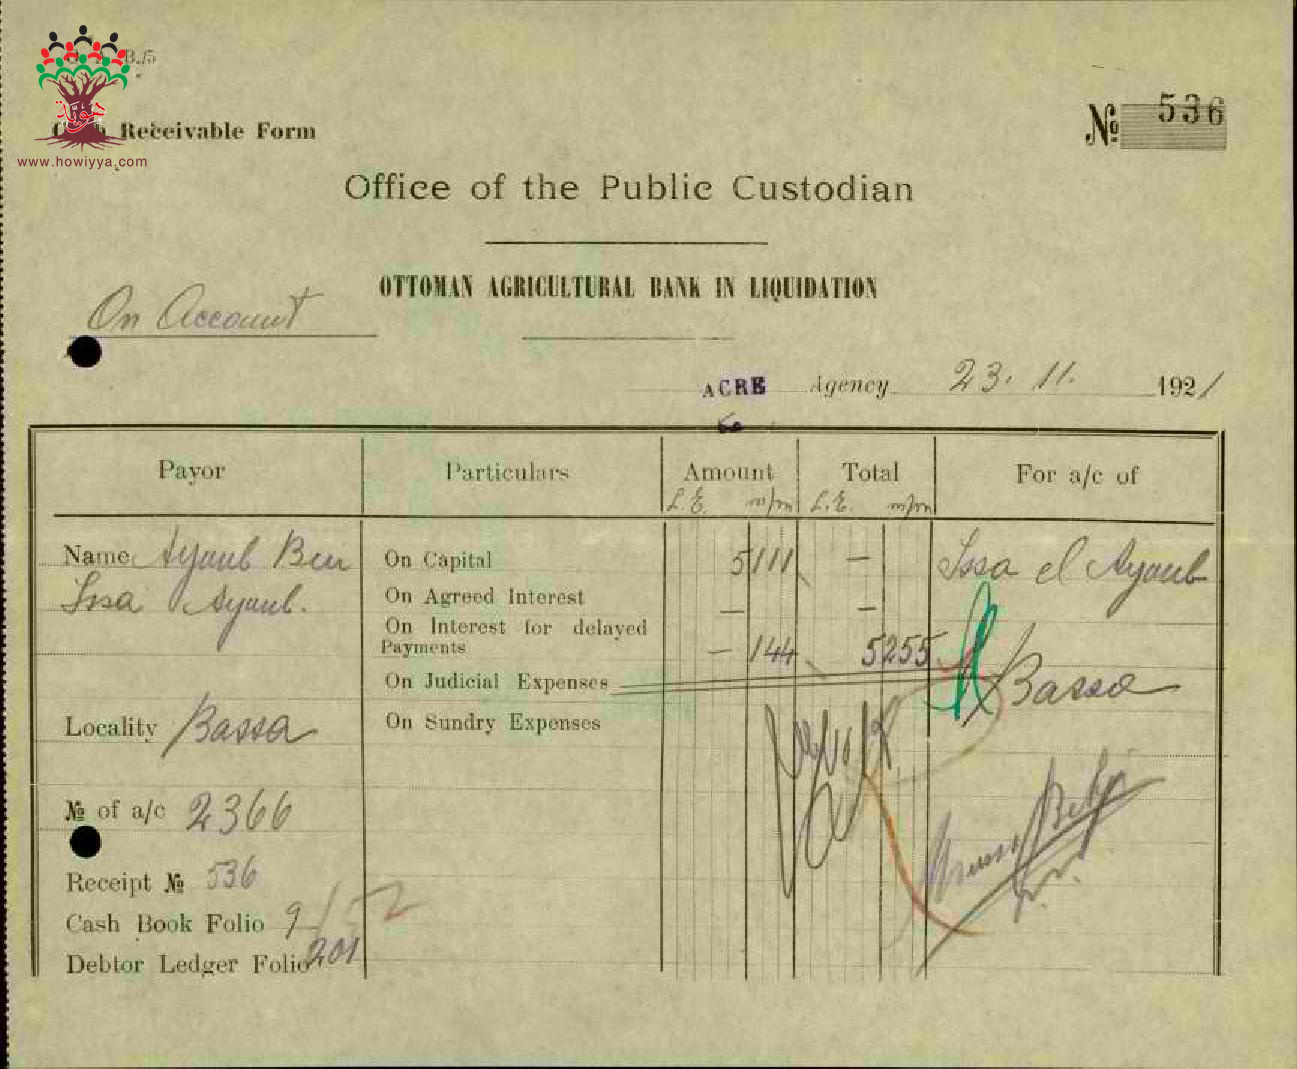 B./5
هوية
www.howiyya.com
Receivable Form
№ 536
Office of the Public Custodian
OTTOMAN AGRICULTURAL BANK IN LIQUIDATION
On Account
ACRE Agency 23. 11. 1921
Payor Particulars Amount Total For a/c of
L.E. m/m L.E. m/m
Name Ayoub Ben On Capital 5 111 — Issa el Ayoub
Issa Ayoub. On Agreed Interest — —
On Interest for delayed
Payments — 144 5255
On Judicial Expenses Bassa
Locality Bassa On Sundry Expenses
№ of a/c 2366
Receipt № 536
Cash Book Folio 9/52
Debtor Ledger Folio 201